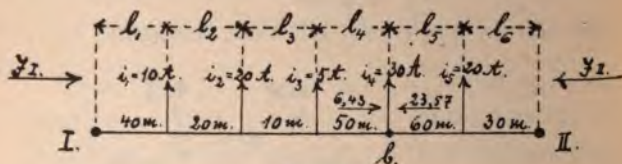 l₁ l₂ l₃ l₄ l₅ l₆
i₁=10A. i₂=20A. i₃=5A. i₄=30A. i₅=20A.
J I. J I.
6,43 23,57
40m. 20m. 10m. 50m. 60m. 30m.
I. b. II.